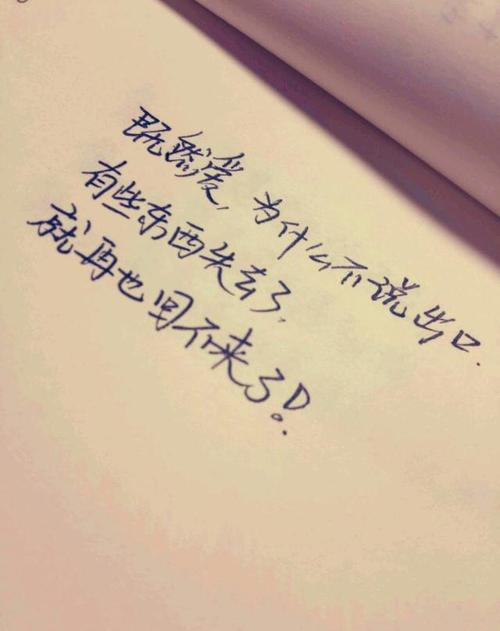 既然爱,为什么不说出口.
有些东西失去了,
就再也回不来了!